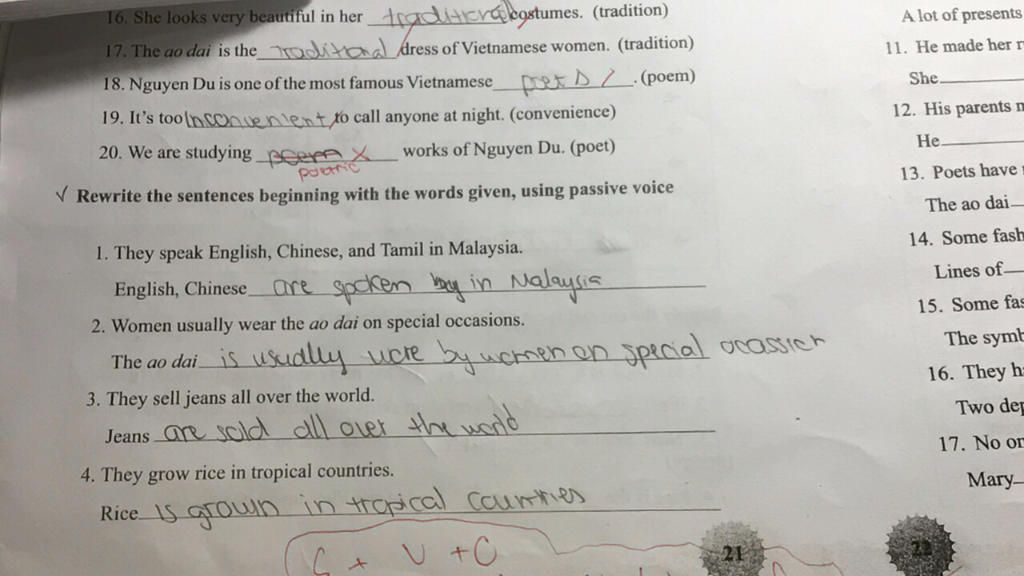 16. She looks very beautiful in her traditional costumes. (tradition)
17. The ao dai is the traditional dress of Vietnamese women. (tradition)
18. Nguyen Du is one of the most famous Vietnamese poet . (poem)
19. It's too Inconvenient to call anyone at night. (convenience)
20. We are studying poem x works of Nguyen Du. (poet)
poetric
√ Rewrite the sentences beginning with the words given, using passive voice
1. They speak English, Chinese, and Tamil in Malaysia.
English, Chinese are spoken in Malaysia
2. Women usually wear the ao dai on special occasions.
The ao dai is usually wore by women on special ocassion
3. They sell jeans all over the world.
Jeans are sold all over the world
4. They grow rice in tropical countries.
Rice is grown in tropical countries
C + V + C
21
A lot of presents
11. He made her
She
12. His parents
He
13. Poets have
The ao dai
14. Some fash
Lines of
15. Some fas
The symb
16. They h
Two dep
17. No on
Mary
22